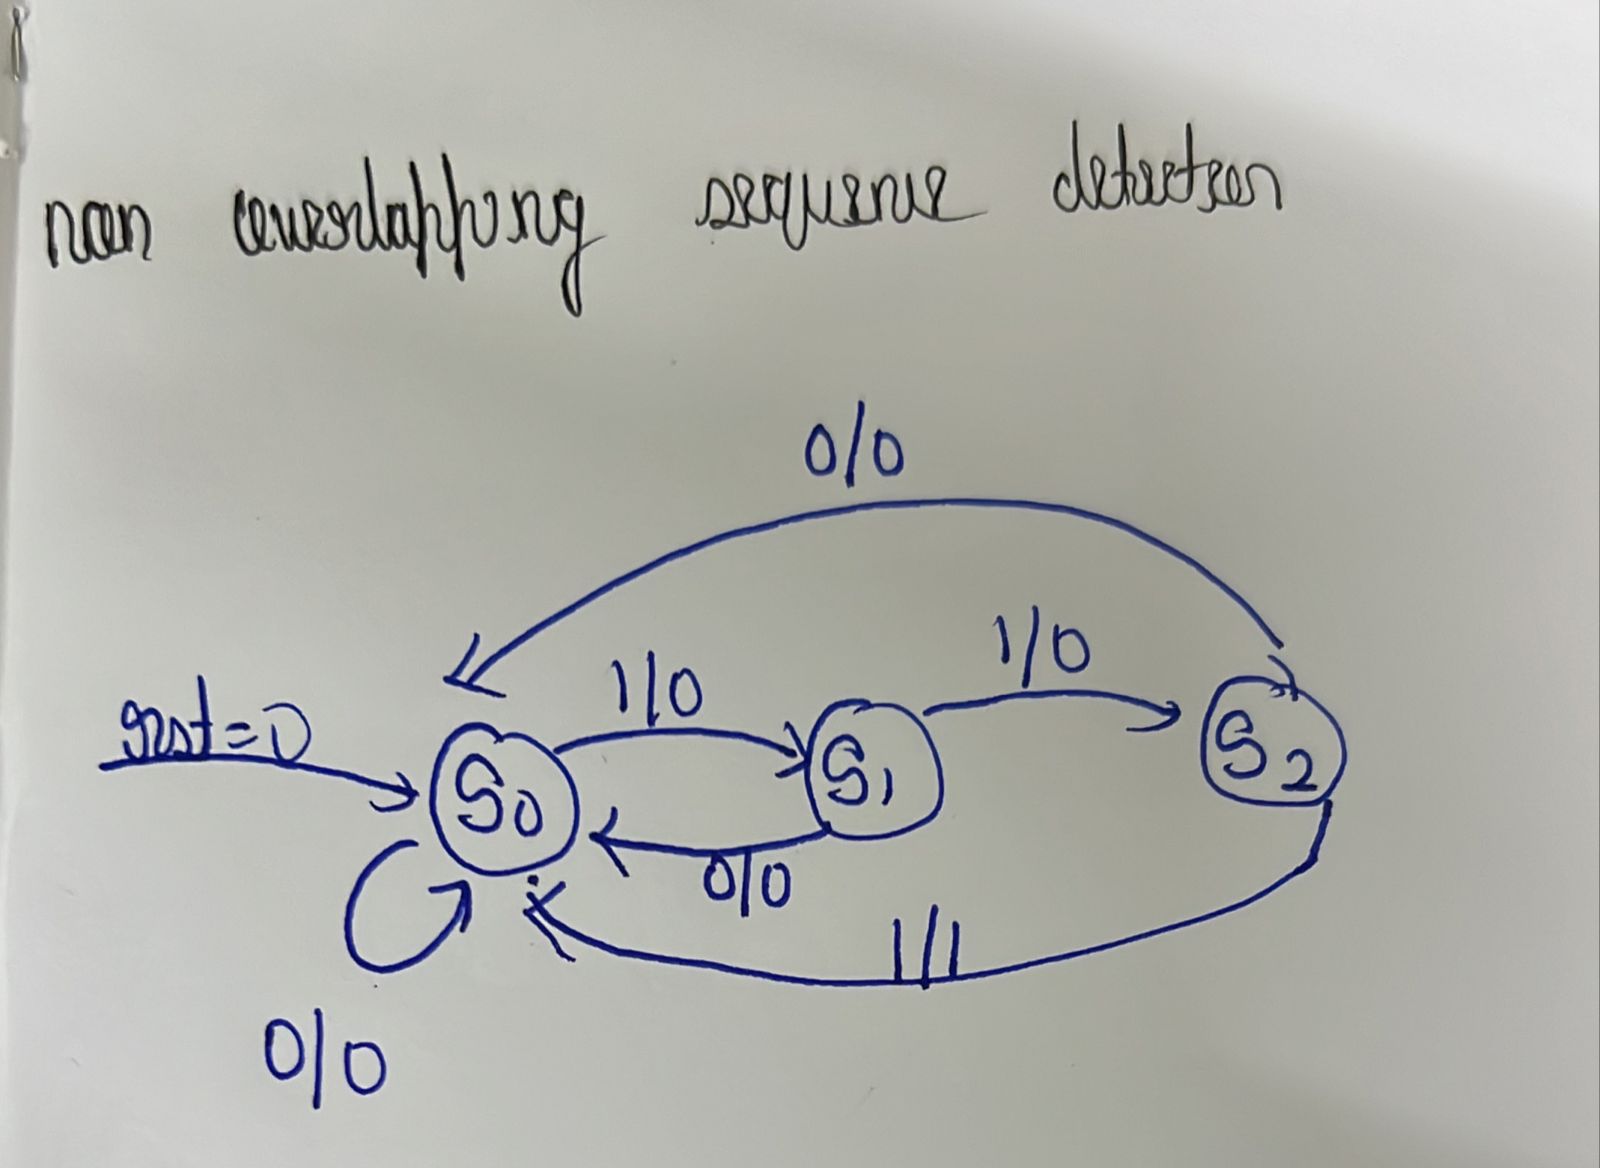 non overlapping sequence detection
0/0
1/0
1/0
rst=0
S0
S1
S2
0/0
1/1
0/0